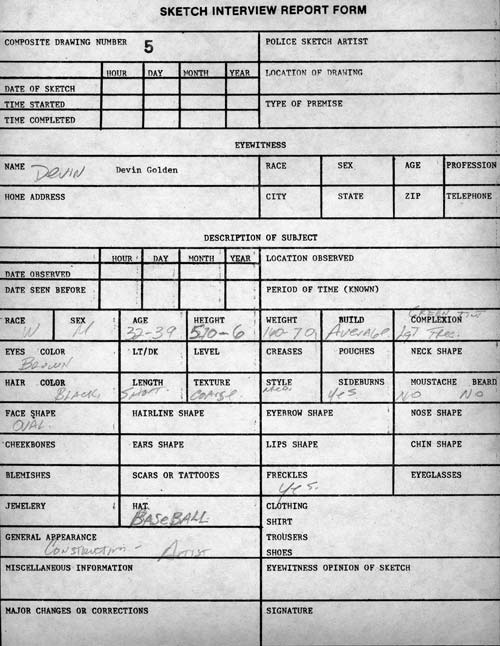 SKETCH INTERVIEW REPORT FORM
COMPOSITE DRAWING NUMBER 5
POLICE SKETCH ARTIST
HOUR DAY MONTH YEAR
LOCATION OF DRAWING
DATE OF SKETCH
TIME STARTED
TYPE OF PREMISE
TIME COMPLETED
EYEWITNESS
NAME Devin Devin Golden
RACE SEX AGE PROFESSION
HOME ADDRESS
CITY STATE ZIP TELEPHONE
DESCRIPTION OF SUBJECT
HOUR DAY MONTH YEAR
LOCATION OBSERVED
DATE OBSERVED
DATE SEEN BEFORE
PERIOD OF TIME (KNOWN)
RACE SEX AGE HEIGHT WEIGHT BUILD COMPLEXION
W M 32-39 5'10-6 160-70 Average Lgt
EYES COLOR LT/DK LEVEL CREASES POUCHES NECK SHAPE
Brown
HAIR COLOR LENGTH TEXTURE STYLE SIDEBURNS MOUSTACHE BEARD
Black Short Coarse Yes NO NO
FACE SHAPE HAIRLINE SHAPE EYEBROW SHAPE NOSE SHAPE
OVAL
CHEEKBONES EARS SHAPE LIPS SHAPE CHIN SHAPE
BLEMISHES SCARS OR TATTOOES FRECKLES EYEGLASSES
Yes.
JEWELERY HAT CLOTHING
BASEBALL
SHIRT
GENERAL APPEARANCE
TROUSERS
Construction - Artist
SHOES
MISCELLANEOUS INFORMATION
EYEWITNESS OPINION OF SKETCH
MAJOR CHANGES OR CORRECTIONS
SIGNATURE